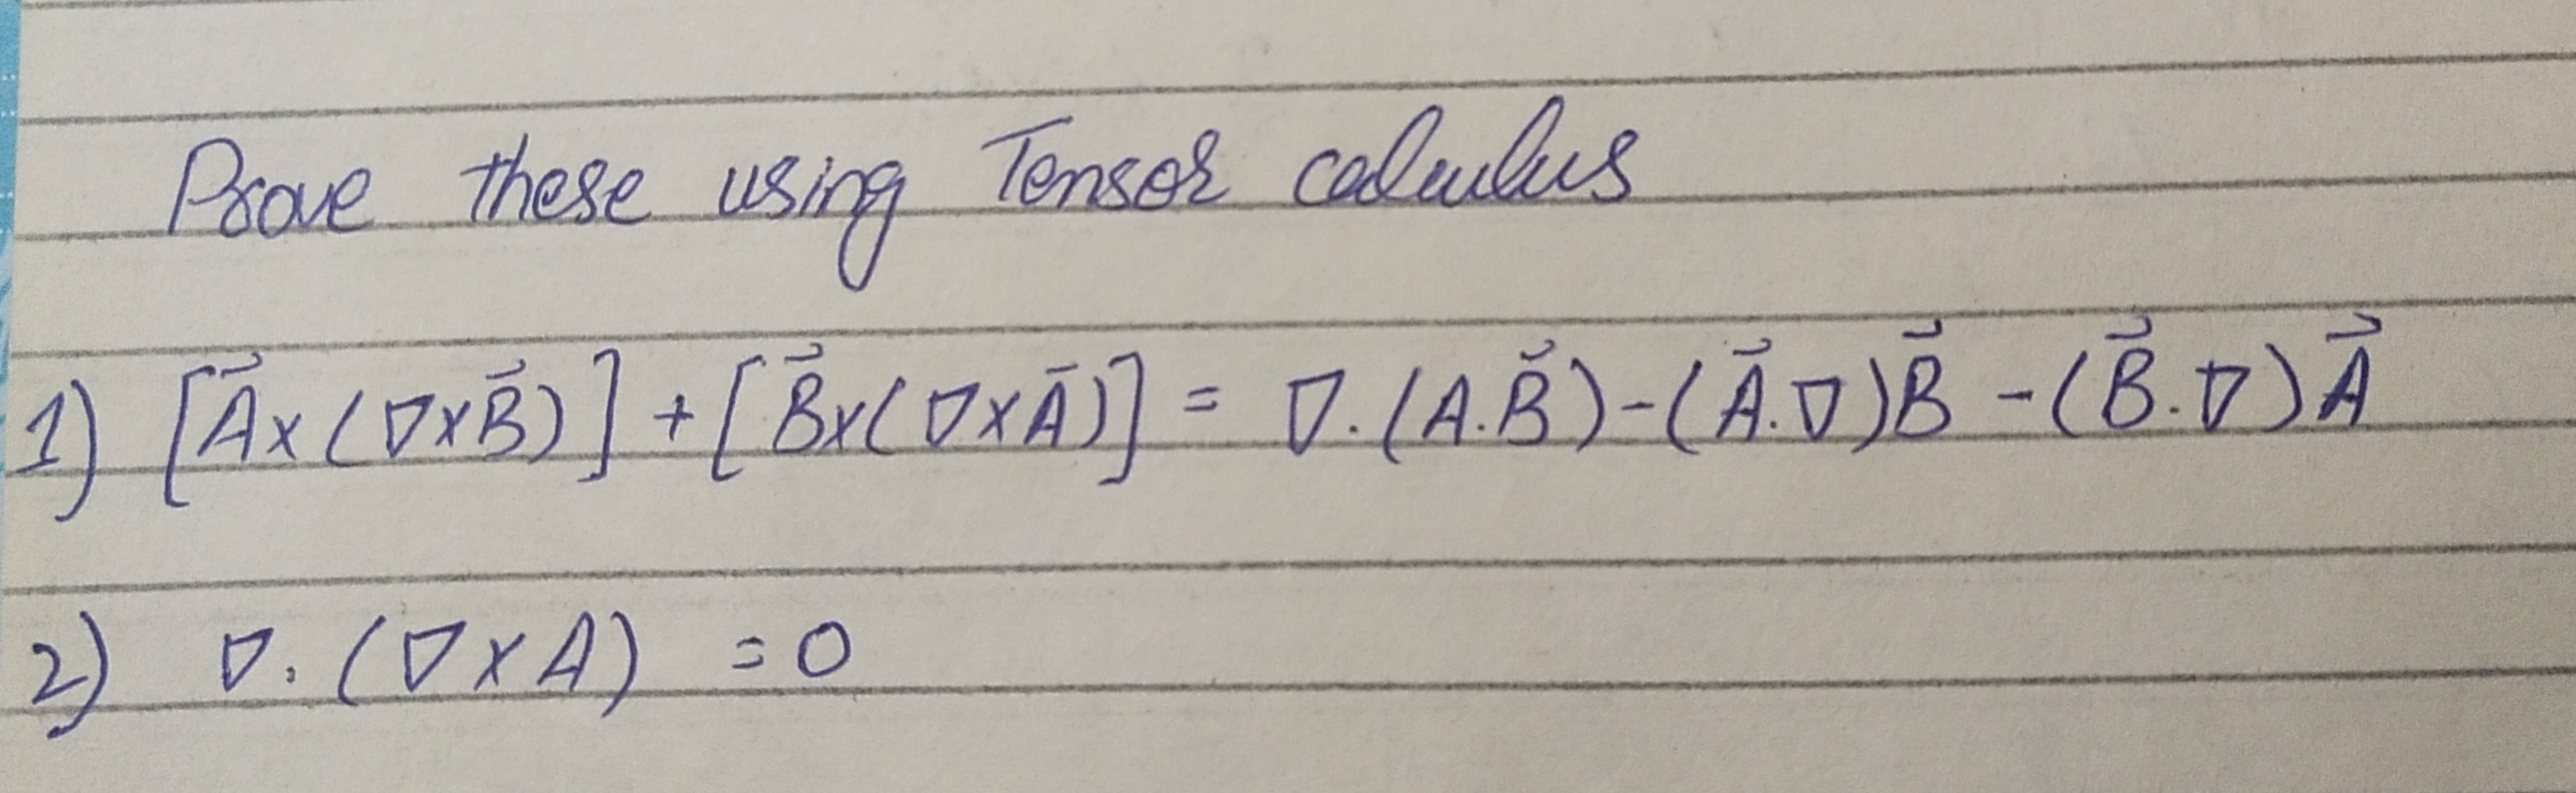 Prove these using Tensor calculus
1) [A⃗ × (∇ × B⃗)] + [B⃗ × (∇ × Ā)] = ∇ . (A . B⃗) - (A⃗ . ∇) B⃗ - (B⃗ . ∇) A⃗
2) ∇ . (∇ × A) = 0